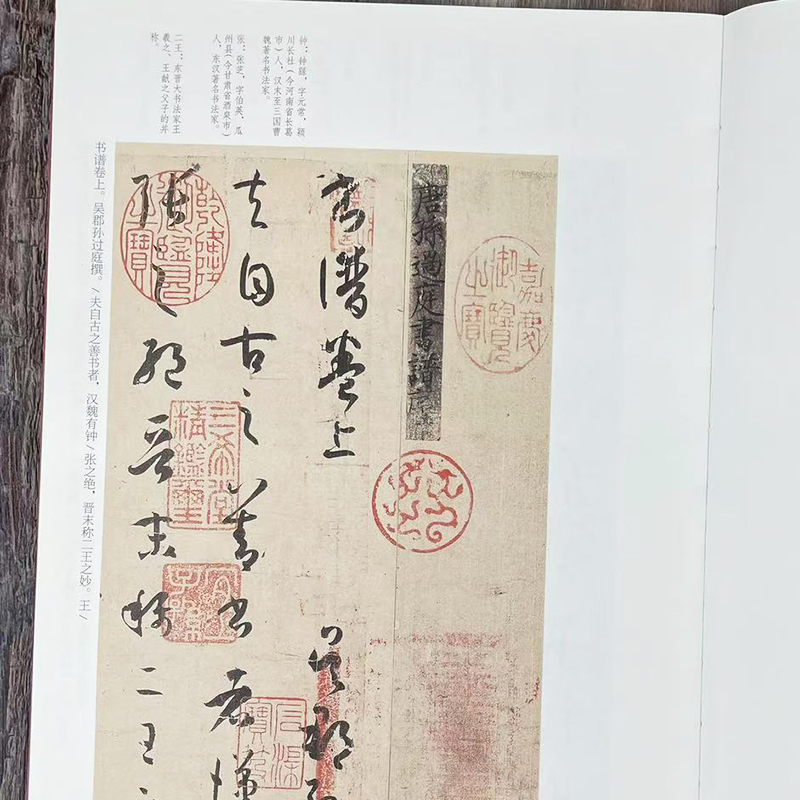 钟：钟繇，字元常，颍
川长社（今河南省长葛
市）人，汉末至三国曹
魏著名书法家。
张：张芝，字伯英，瓜
州县（今甘肃省酒泉市）
人，东汉著名书法家。
二王：东晋大书法家王
羲之、王献之父子的并
称。
嘉慶御覽之寶
唐孫過庭書譜序
書譜卷上 吳郡
夫自古之善書者漢
張之絕晉末稱二王之
乾隆御覽之寶
三希堂精鑑璽
宜子孫
石渠寶笈
书谱卷上。吴郡孙过庭撰。/夫自古之善书者，汉魏有钟/张之绝，晋末称二王之妙。王/